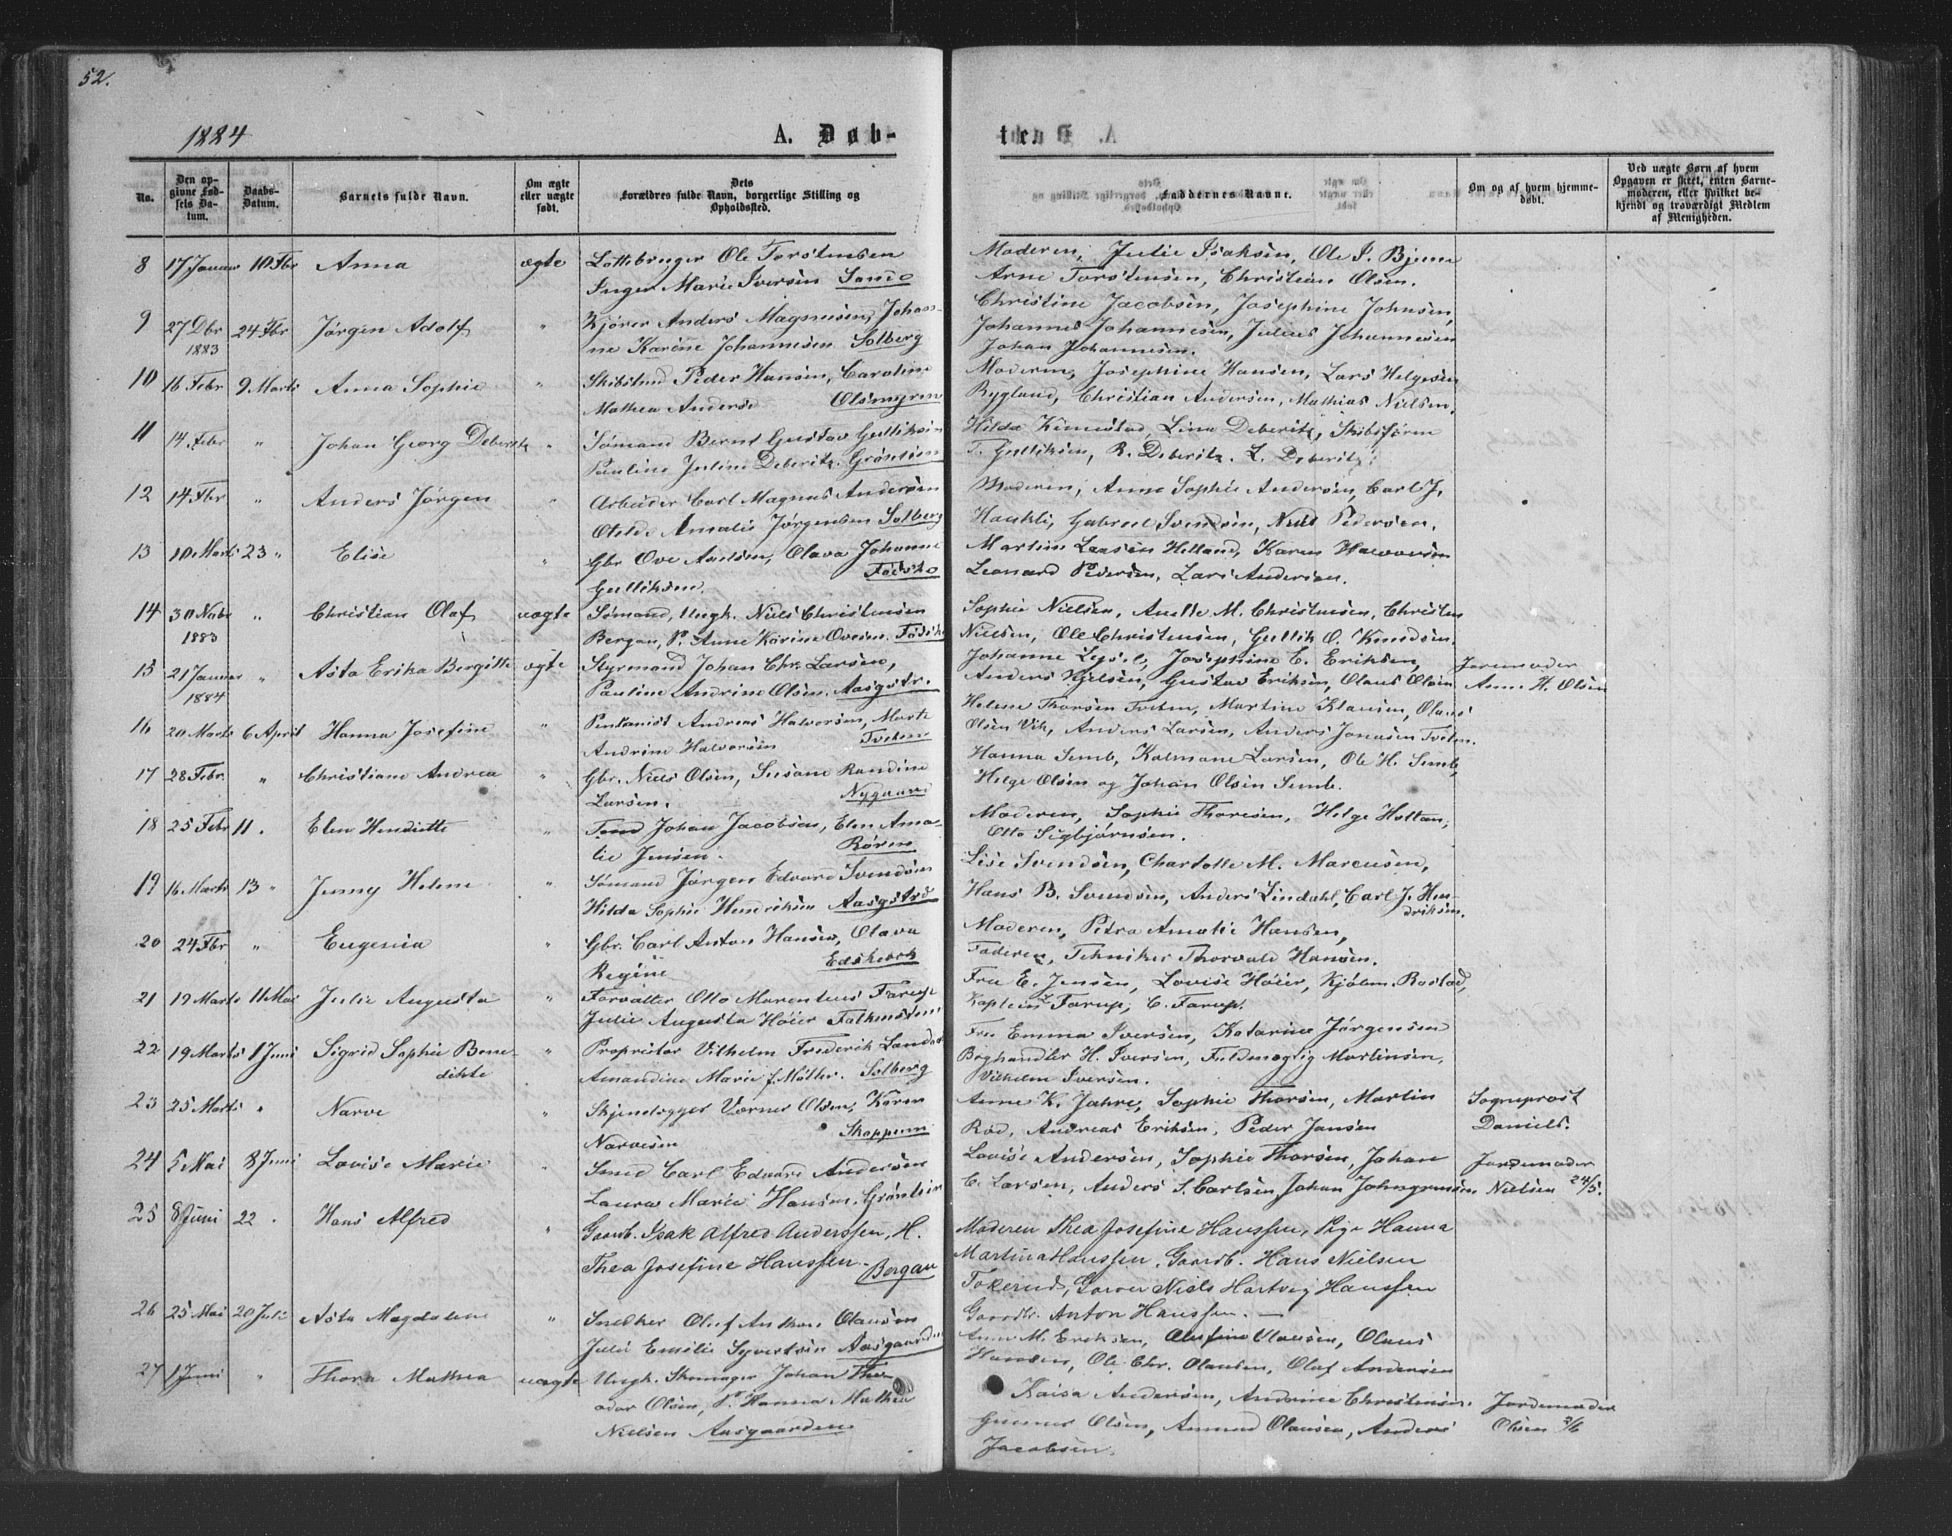 52.
1884
A. Døb-
te.
No.
Den op-
givne Fød-
sels Da-
tum.
Daabs-
Datum.
Barnets fulde Navn.
Om ægte
eller uægte
født.
Dets
Forældres fulde Navn, borgerlige Stilling og
Opholdssted.
Faddernes Navne.
Om og af hvem hjemme-
døbt.
Ved uægte Børn af hvem
Opgaven er skeet, enten Barne-
moderen, eller hvilket be-
kjendt og troværdigt Medlem
af Menigheden.
8 17 Januar 10 Fbr Anna ægte Ole Torstensen Moderen, Julie Isaksen, Ole I. Bjune
Inger Marie Iversen Sande Arne Torstensen, Christian Olsen.
9 27 Dbr 24 Fbr Jørgen Adolf " Kjører Anders Magnusen, Johan- Christine Jacobsen, Josephine Johnsen,
1883 ne Karine Johannesen Solberg Johannes Johannesen, Julius Johannesen
Johan Johannesen.
10 16 Febr 9 Marts Anna Sophie " Peder Hansen, Caroline Moderen, Josephine Hansen, Lars Helgesen
Mathea Anders Olsmyren Rygland, Christian Andersen, Mathias Nielsen.
11 14 Febr " Johan Georg Deberitz " Sømand Bernt Gustav Gulliksen Hilda Lina Deberitz, Skibsfører
Pauline Juline Deberitz. T. Gulliksen, R. Deberitz. L. Deberitz.
12 14 Fbr " Anders Jørgen " Arbeider Carl Magnus Andersen Moderen, Anne Sophie Andersen, Carl J.
Amalie Jørgensen Solberg Haukli, Gabriel Svendsen, Niels Pedersen.
13 10 Marts 23 " Elise " Gbr Ove Axelsen, Olava Johanne Martine Larsen Helland, Karen Halvorsen
Gulliksen. Leonard Pedersen, Lars Andersen.
14 30 Novbr " Christian Olaf uægte Sømand, Ungk. Niels Christensen Sophie Nielsen, Anette M. Christensen, Christen
1883 Bergan, P. Anne Karine Ovesen. Nielsen, Ole Christensen, Gullik O. Knudsen.
15 21 Januar " Asta Erika Bergitte ægte Styrmand Johan Chr. Larsen, Johanne Josephine E. Eriksen, Jormoder
1884 Pauline Andrine Olsen. Aasgstr. Anders Gustav Eriksen, Olaus Olsen Anne H. Olsen
16 20 Marts 6 April Hanna Josefine " Andreas Halvorsen, Marte Helene Thorsen Tveten, Martine Klausen, Olaus
Andrine Halvorsen Tveten Olsen Vik, Anders Larsen, Anders Jonasen Tveten.
17 28 Febr. " Christiane Andrea " Gbr. Niels Olsen, Susane Randine Hanna Semb, Kalmane Larsen, Ole H. Semb,
Larsen. Nygaard Helge Olsen og Johan Olsen Semb.
18 25 Febr 11. Elen Henriette " Johan Jacobsen, Elen Ama- Moderen, Sophie Thoresen, Helge Holtan,
lie Jensen. Røren Otto Sigbjørnsen.
19 16 Marts 13 " Jenny Helene " Sømand Jørgen Edvard Svendsen Lise Svendsen, Charlotte M. Marcusen,
Hilda Sophie Hendriksen Aasgstrd Hans B. Svendsen, Anders Lindahl, Carl J. Hen-
driksen.
20 24 Fbr " Eugenia " Gbr. Carl Anton Hansen, Olava Moderen, Petra Amalie Hansen,
Regine Faderen, Tekniker Thorvald Hansen.
21 19 Marts 11 Mai Julie Augusta " Forvalter Otto Marentius Farup Fru E. Jensen, Lovise Høier, Kjøbm. Rostad,
Julie Augusta Høier Falkensten Kaptein Farup, C. Farup.
22 19 Marts 1 Juni Sigrid Sophie Bene- " Proprietær Vilhelm Frederik Fru Emma Iversen, Katarine Jørgensen
dikte Amandine Marie f. Møller. Solberg Boghandler H. Iversen, Fuldmægtig Martinsen,
Vilhelm Iversen.
23 25 Marts " Narve " Værner Olsen, Karen Anne K. Jahre, Sophie Thorsen, Martin Sogneprost
Narvesen Skoppum Rød, Andreas Eriksen, Peder Jansen Daniels.
24 5 Mai 8 Juni Lovise Marie " Smed Carl Edvard Andersen Lovise Andersen, Sophie Thorsen, Johan Jordemoder
Laura Marie Hansen. C. Larsen, Anders S. Carlsen, Johan Nielsen 24/5.
25 8 Juni 22 " Hans Alfred " Gaardb. Isak Alfred Anderssen, H. Moderen Thea Josefine Hanssen, Pige Hanna
Thea Josefine Hanssen. Bergan Martina Hanssen, Gaardb. Hans Nielsen
Niels Hartvig Hanssen
Gaardbr. Anton Hanssen.
26 25 Mai 20 Juli Asta Magdalene " Snedker Oluf Anthon Olausen Anne M. Eriksen, Olufine Olausen, Olaus
Julie Emilie Syvertsen Aasgaard Hansen, Ole Chr. Olausen, Olaf Andersen
27 1 Juni " Thora Mathea uægte Ungk. Skomager Johan The- Kaisa Andersen, Andrine Christensen. Jordemoder
odor Olsen, P. Hanna Mathea Gunner Olsen, Amund Olausen, Anders Olsen
Nielsen Aasgaarden Jacobsen.